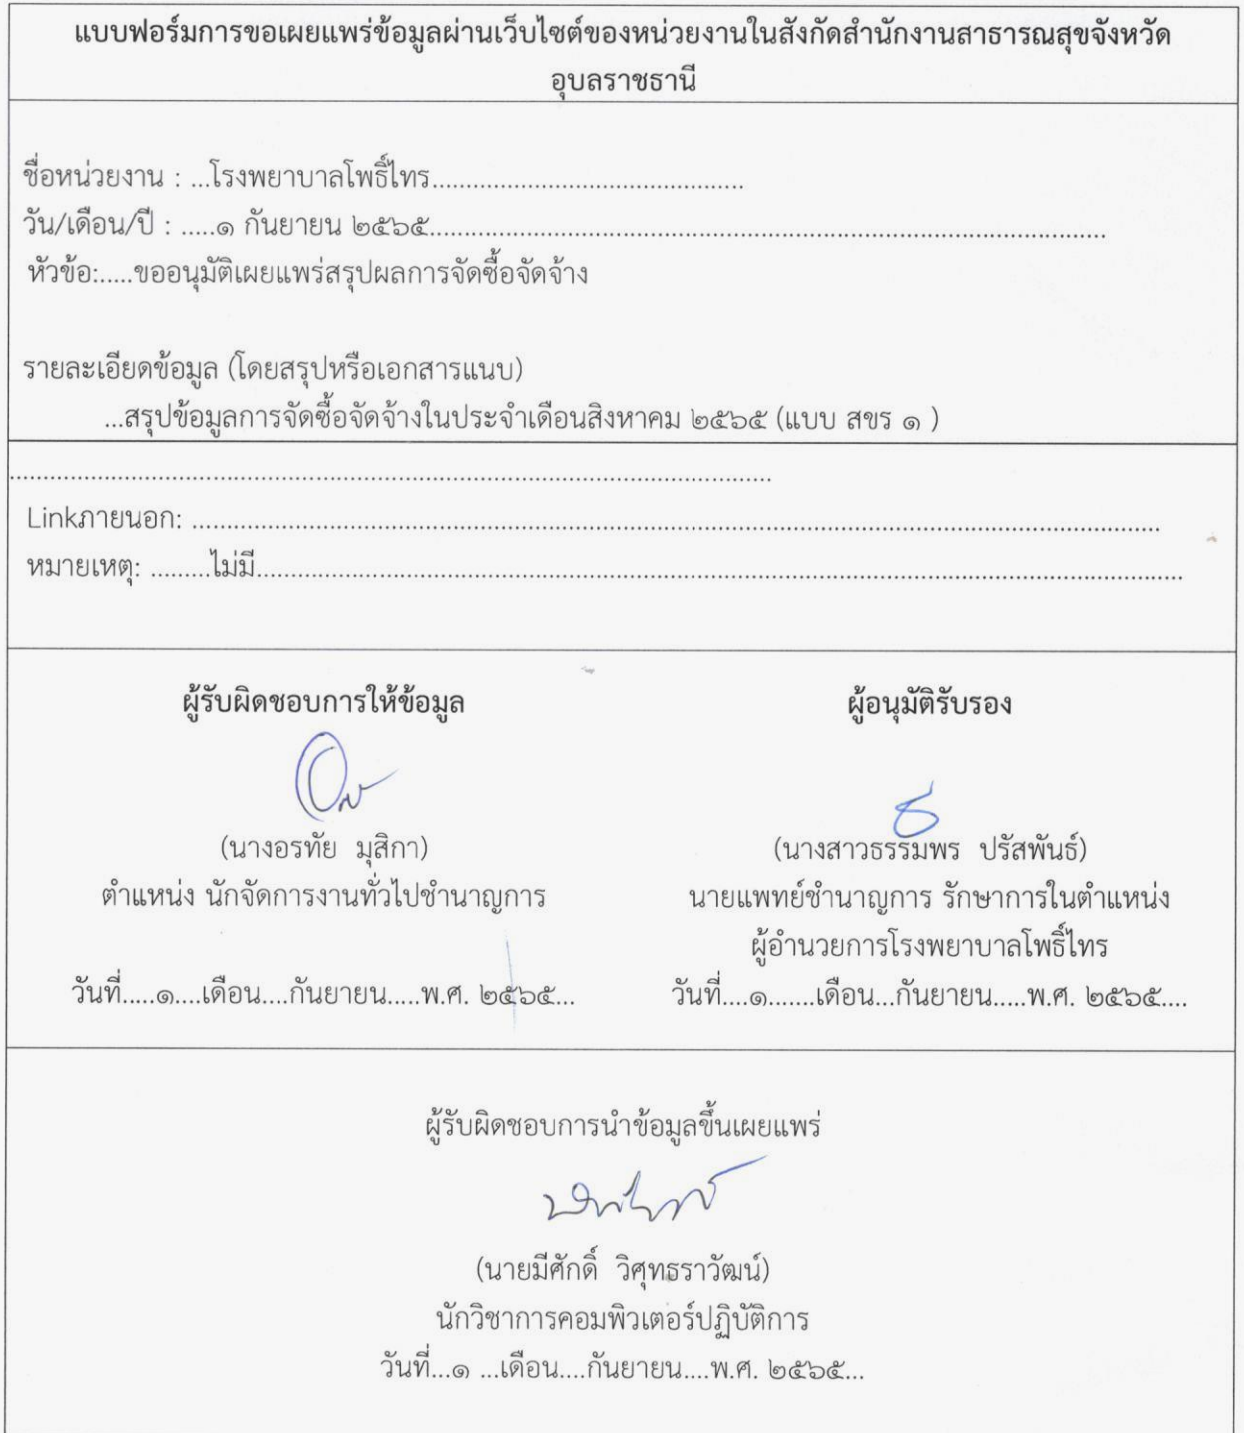 แบบฟอร์มการขอเผยแพร่ข้อมูลผ่านเว็บไซต์ของหน่วยงานในสังกัดสำนักงานสาธารณสุขจังหวัด
อุบลราชธานี
ชื่อหน่วยงาน : ...โรงพยาบาลโพธิ์ไทร..............................................
วัน/เดือน/ปี : .....๑ กันยายน ๒๕๖๕....................................................................................................
หัวข้อ:.....ขออนุมัติเผยแพร่สรุปผลการจัดซื้อจัดจ้าง
รายละเอียดข้อมูล (โดยสรุปหรือเอกสารแนบ)
...สรุปข้อมูลการจัดซื้อจัดจ้างในประจำเดือนสิงหาคม ๒๕๖๕ (แบบ สขร ๑ )
................................................................................................................
Linkภายนอก: ...............................................................................................................................................
หมายเหตุ: .........ไม่มี.........................................................................................................................................
ผู้รับผิดชอบการให้ข้อมูล ผู้อนุมัติรับรอง
(นางอรทัย มุสิกา) (นางสาวธรรมพร ปรัสพันธ์)
ตำแหน่ง นักจัดการงานทั่วไปชำนาญการ นายแพทย์ชำนาญการ รักษาการในตำแหน่ง
ผู้อำนวยการโรงพยาบาลโพธิ์ไทร
วันที่.....๑....เดือน....กันยายน.....พ.ศ. ๒๕๖๕... วันที่....๑.......เดือน...กันยายน.....พ.ศ. ๒๕๖๕....
ผู้รับผิดชอบการนำข้อมูลขึ้นเผยแพร่
(นายมีศักดิ์ วิศุทธราวัฒน์)
นักวิชาการคอมพิวเตอร์ปฏิบัติการ
วันที่...๑ ...เดือน....กันยายน....พ.ศ. ๒๕๖๕...